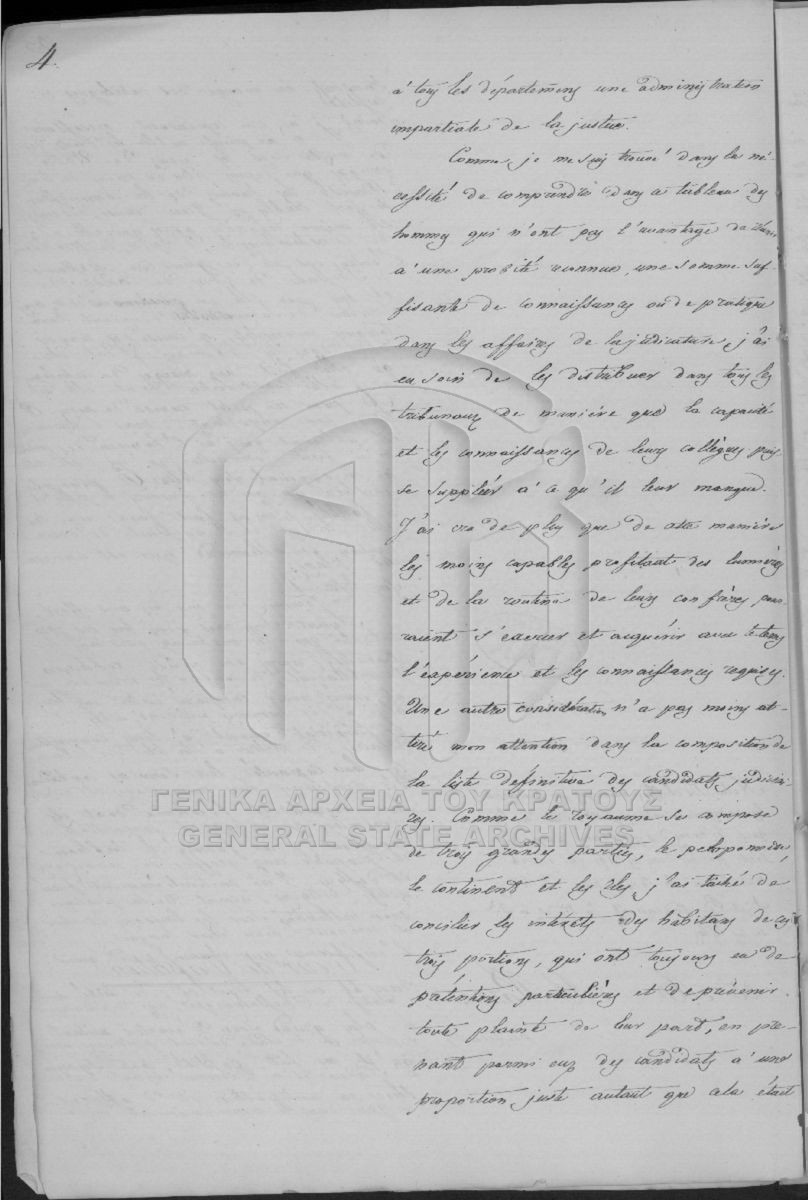 4.
à tous les départemens une administration
impartiale de la justice.
Comme je me suis trouvé dans la né-
cessité de comprendre dans ce tableau des
hommes qui n'ont pas l'avantage de réunir
à une probité reconnue, une somme suf-
fisante de connaissances ou de pratique
dans les affaires de la judicature, j'ai
eu soin de les distribuer dans tous les
tribunaux de manière que la capacité
et les connaissances de leurs collègues puis-
se suppléer à ce qu'il leur manque.
J'ai cru de plus que de cette manière
les moins capables profitant des lumières
et de la routine de leurs confrères pour-
raient s'exercer et acquérir avec le tems
l'expérience et les connaissances requises.
Une autre considération n'a pas moins at-
tiré mon attention dans la composition de
la liste définitive des candidats judiciai-
res. Comme le royaume se compose
de trois grandes parties, le peloponnèse,
le continent et les îles, j'ai tâché de
concilier les intérêts des habitans de ces
trois portions, qui ont toujours eu de
prétentions particulières et de prévenir
toute plainte de leur part, en pre-
nant parmi eux des candidats à une
proportion juste autant que cela était
ΓΕΝΙΚΑ ΑΡΧΕΙΑ ΤΟΥ ΚΡΑΤΟΥΣ
GENERAL STATE ARCHIVES